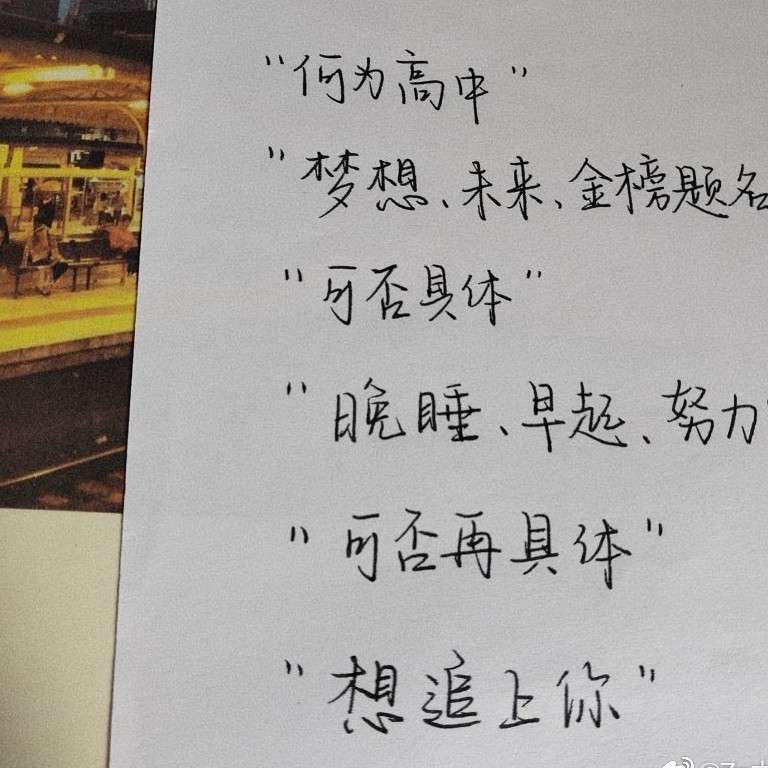 "何为高中"
"梦想、未来、金榜题名
"可否具体"
"晚睡、早起、努力"
"可否再具体"
"想追上你"